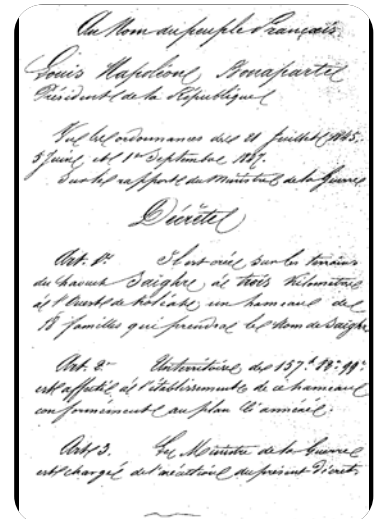 Au Nom du peuple Français
Louis Napoléon Bonaparte
Président de la République
Vu les ordonnances des 21 Juillet 1845.
5 Juin et 1er Septembre 1847.
Sur le rapport du Ministre de la Guerre
Décrète
Art. 1er Il est créé sur les terrains
du haouch Saighr à trois Kilomètres
à l'Ouest de Koléah, un hameau de
18 familles qui prendra le Nom de Saighr
Art. 2. Un territoire de 157h 18a 99c
est affecté à l'établissement de ce hameau
conformément au plan ci annexé.
Art. 3. Le Ministre de la Guerre
est chargé de l'exécution du présent décret.